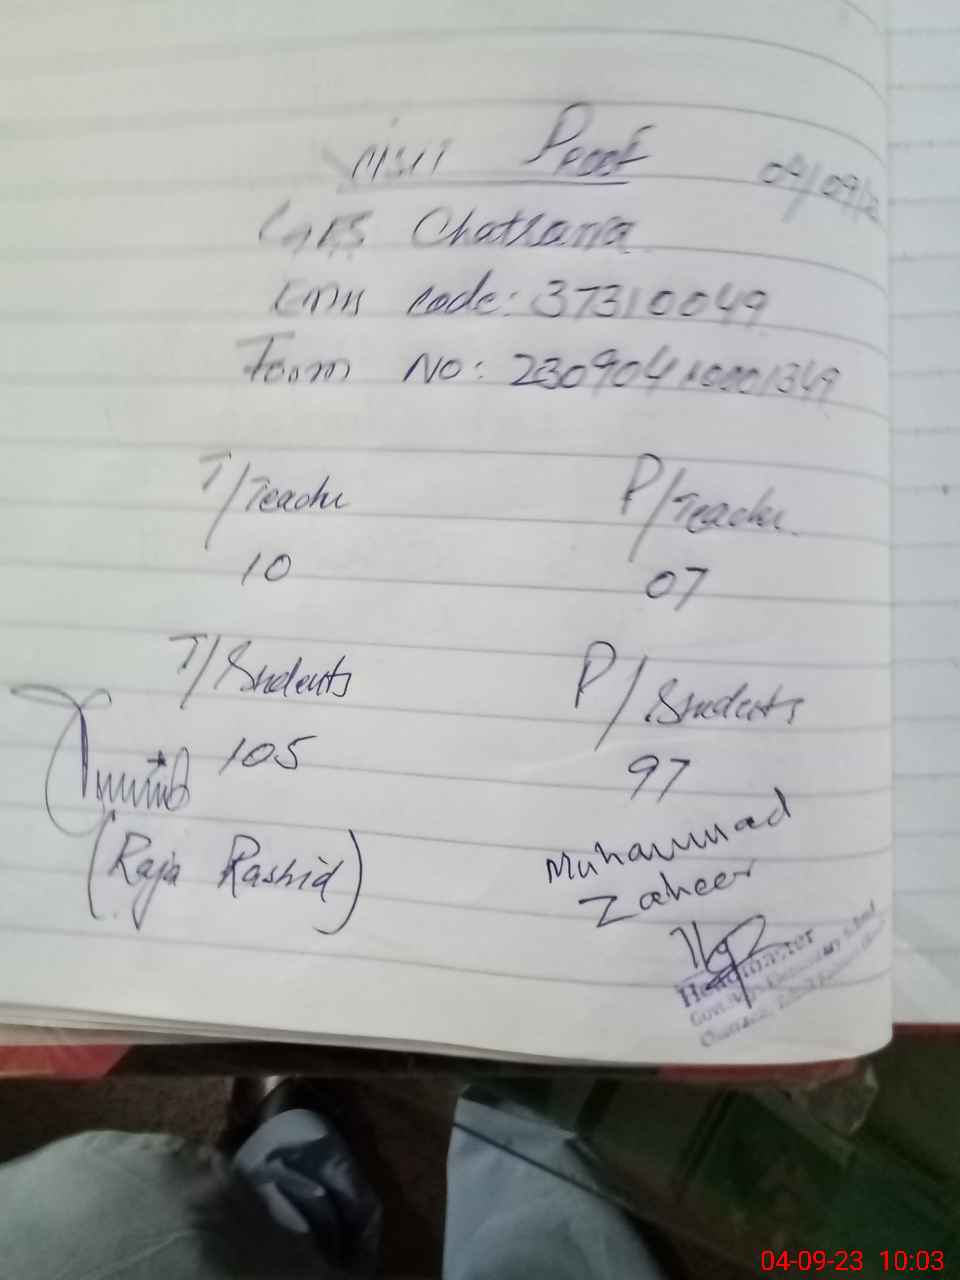 Visit Proof 04/09/2
GES Chatlana
EMIS code: 37310049
Form No: 23090410001349
T/Teacher P/Teacher
10 07
T/Students P/Students
105 97
(Raja Rashid) Muhammad
Zaheer
Headmaster
04-09-23 10:03